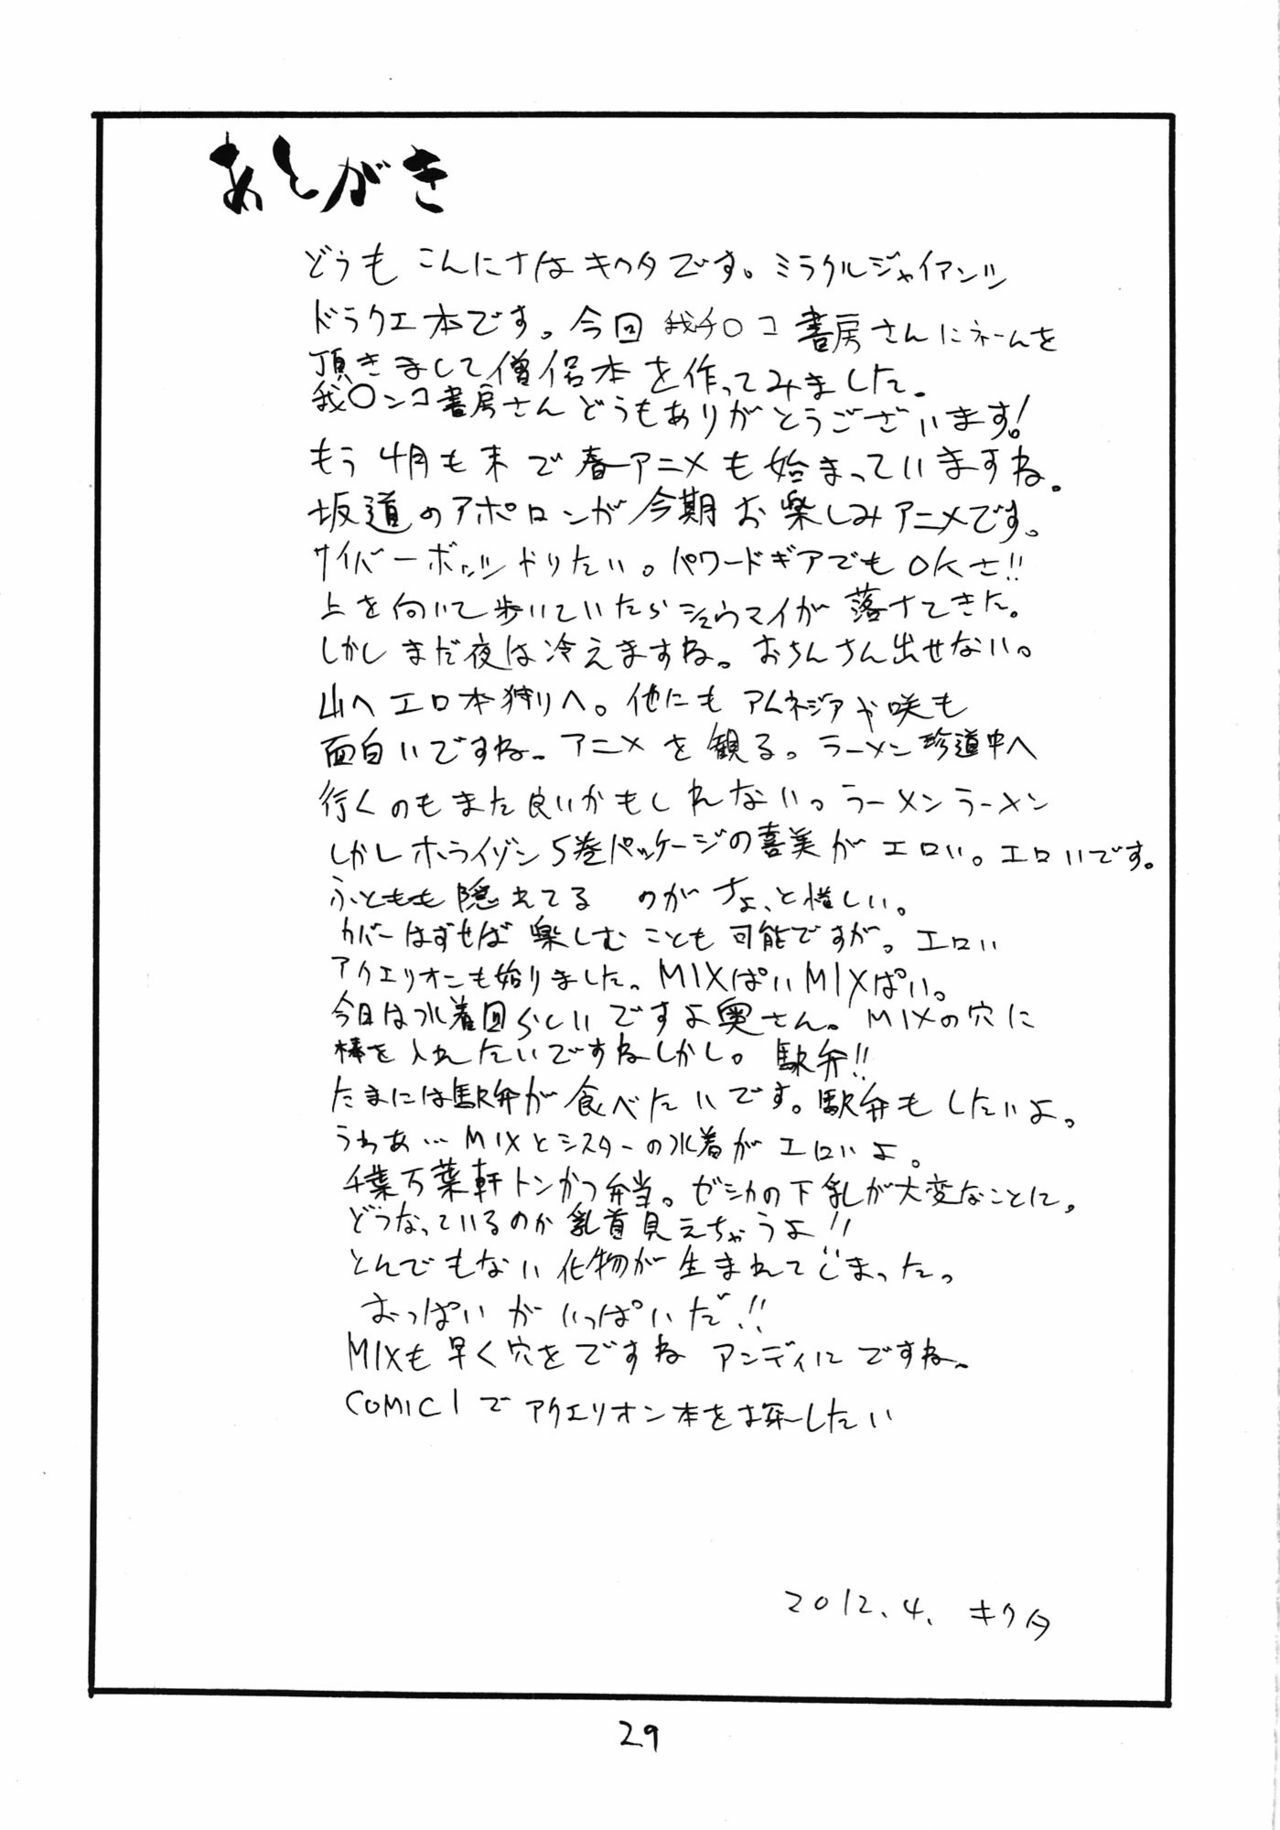 あとがき
どうも こんにちは キクタです。ミラクルジャイアンツ
ドラクエ本です。今回 我チ○コ 書房さんにネームを
頂きまして僧侶本を作ってみました。
我○ンコ書房さんどうもありがとうございます!
もう 4月も末で春アニメも始まっていますね。
坂道のアポロンが今期お楽しみアニメです。
サイバーボッツドりたい。パワードギアでもOKさ!!
上を向いて歩いていたらシュウマイが落ちてきた。
しかしまだ夜は冷えますね。おちんちん出せない。
山へエロ本狩りへ。他にもアムネジアや咲も
面白いですね。アニメを観る。ラーメン珍道中へ
行くのもまた良いかもしれない。ラーメンラーメン
しかしホライゾン5巻パッケージの喜美がエロい。エロいです。
ふともも隠れてる のがちょっと惜しい。
カバーはずせば楽しむことも可能ですが。エロい
アクエリオンも始りました。MIXぱいMIXぱい。
今日は水着回らしいですよ奥さん。MIXの穴に
棒を入れたいですねしかし。駅弁!!
たまには駅弁が食べたいです。駅弁もしたいよ。
うわあ…MIXとシスターの水着がエロいよ。
千葉万葉軒トンかつ弁当。ゼシカの下乳が大変なことに。
どうなっているのか乳首見えちゃうよ!!
とんでもない化物が生まれてしまった。
おっぱいがいっぱいだ!!
MIXも早く穴をですねアンディにですね。
COMIC1でアクエリオン本を探したい
2012.4. キクタ
29